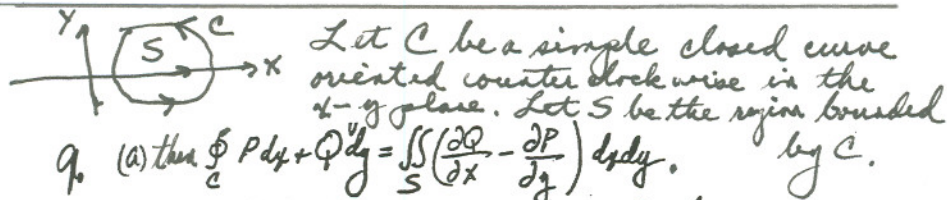 Y
C
S
X
Let C be a simple closed curve
oriented counter clockwise in the
x-y plane. Let S be the region bounded
by C.
9. (a) then ∮_C Pdx + Qdy = ∬_S (∂Q/∂x - ∂P/∂y) dxdy.